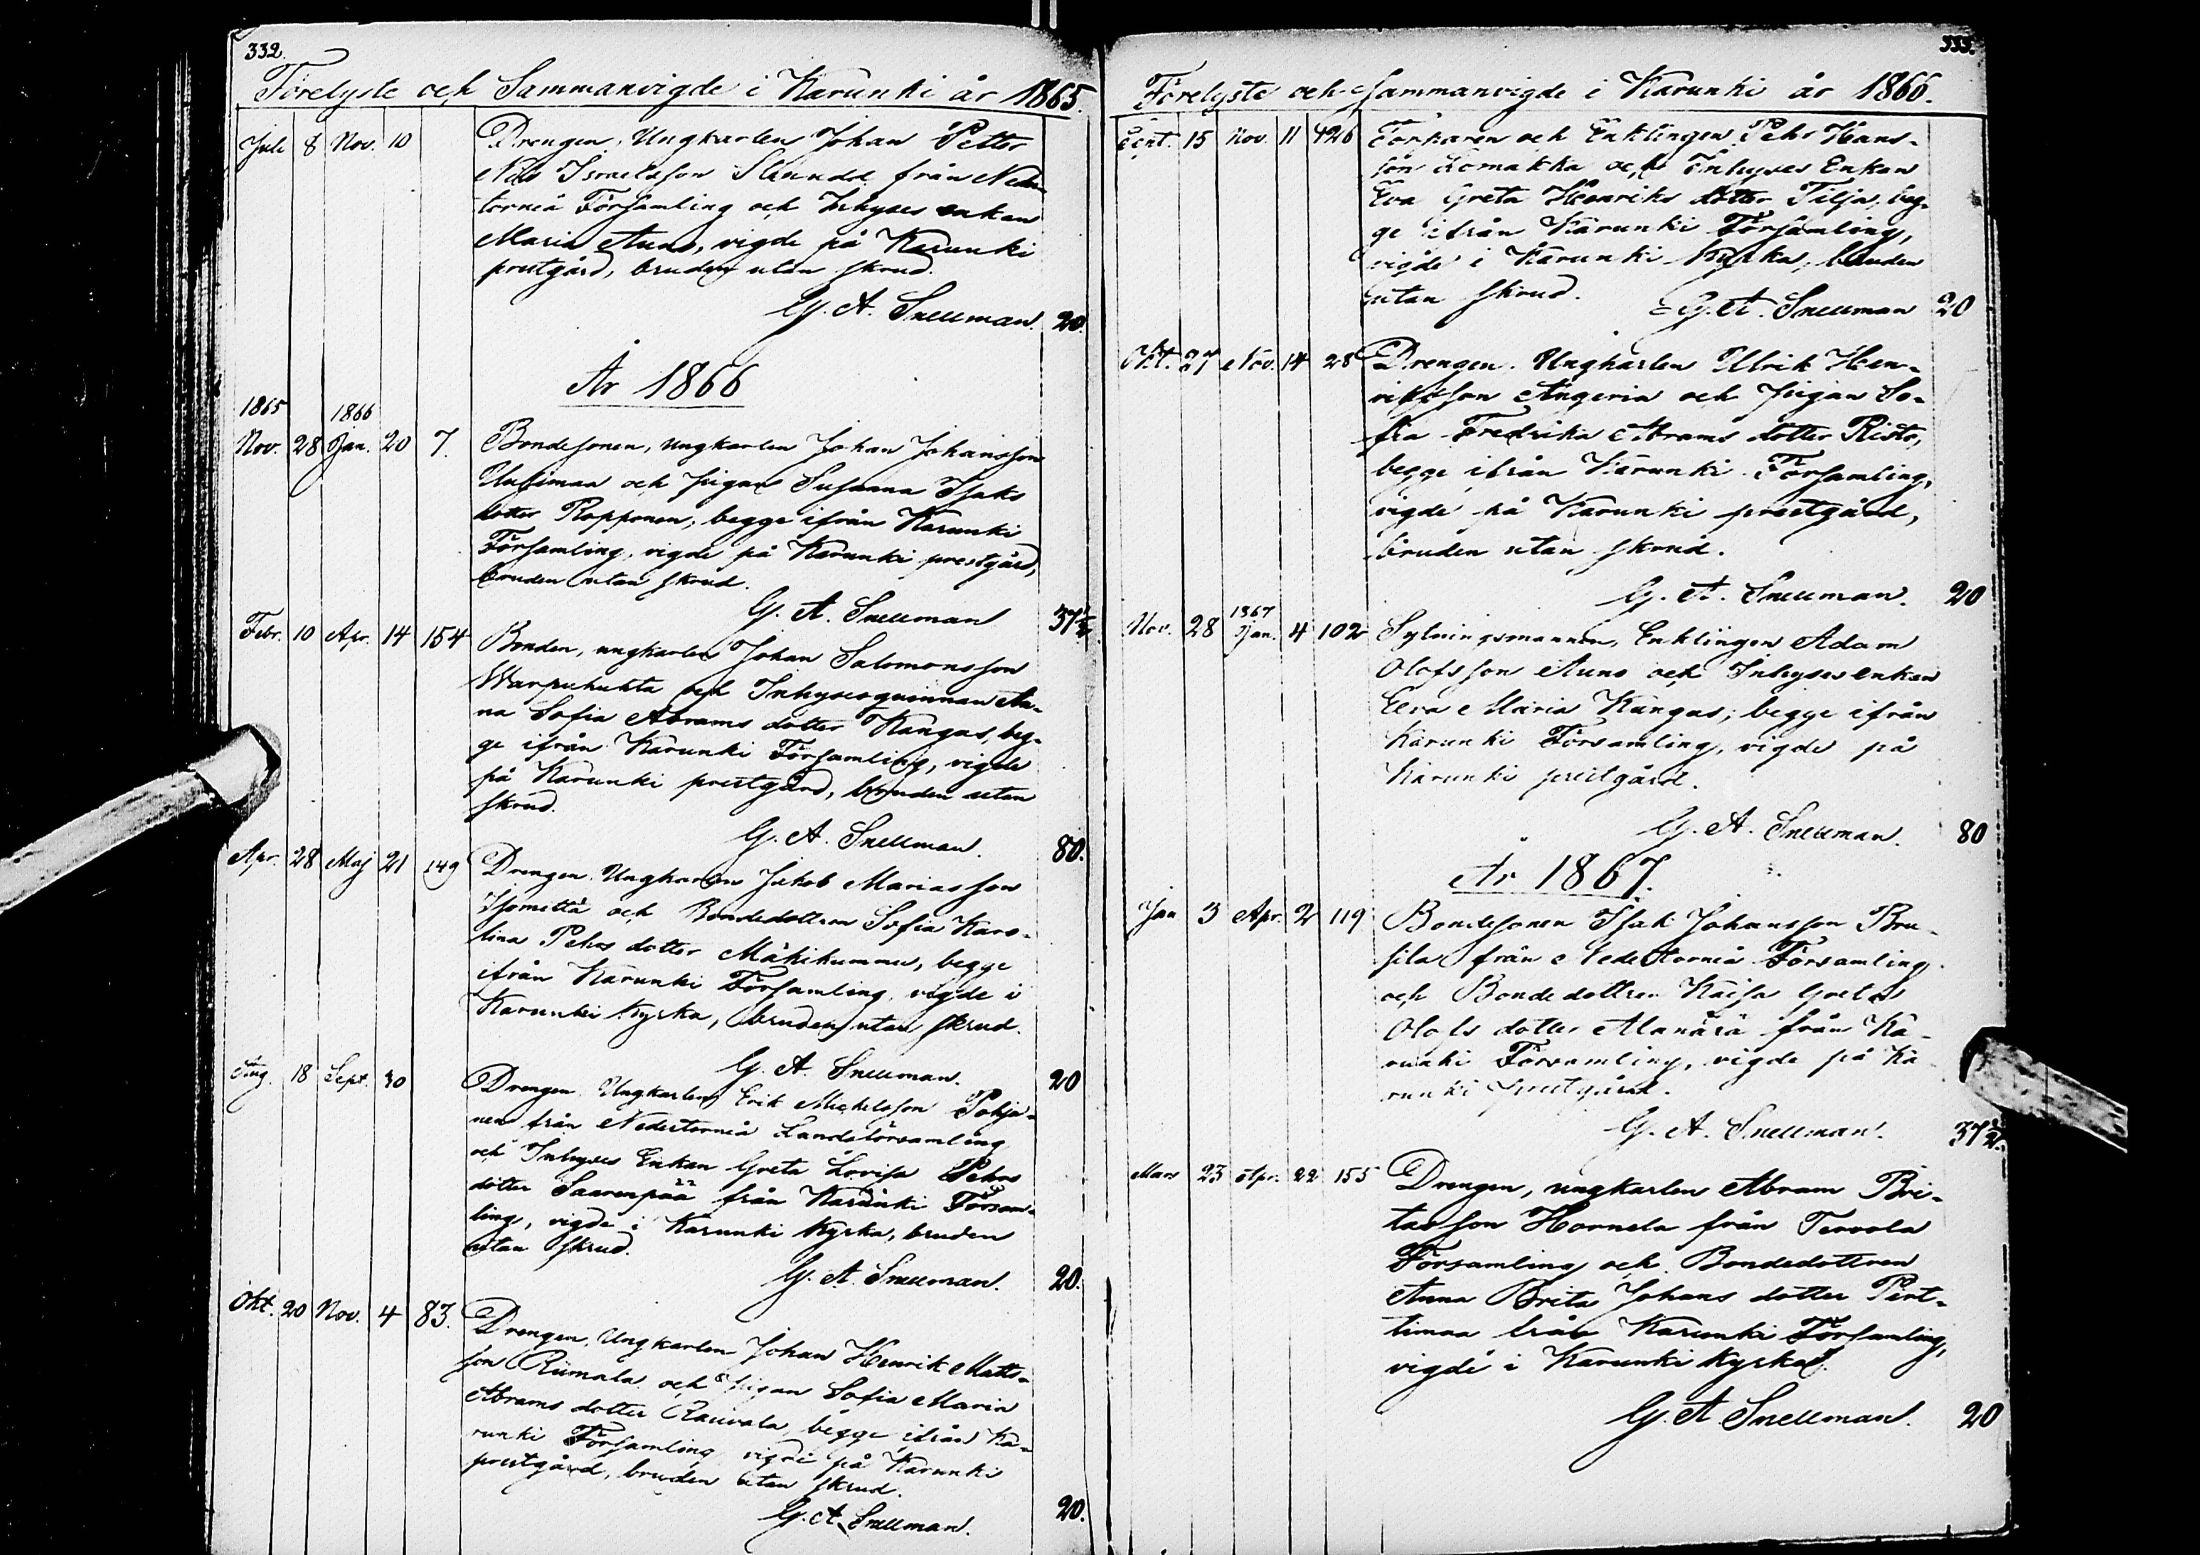 332.
Förelyste och Sammanvigde i Karunki år 1865.
Juli 8 Nov. 10 Drengen, Ungkarlen Johan Petter
Nils Israelsson från Neder-
torneå Församling och Inhyses enkan
Maria Auno, vigde på Karunki
prestgård, bruden utan skrud.
G. A. Snellman 20.
År 1866
1865 1866
Nov. 28 Jan. 20 7. Bondesonen, ungkarlen Johan Johansson
Uusimaa och pigan Susanna Isaks
dotter Ropponen, begge ifrån Karunki
Församling, vigde på Karunki prestgård,
bruden utan skrud.
G. A. Snellman 37 1/2
Febr. 10 Apr. 14 154 Bonden, ungkarlen Johan Salomonsson
Warpuhuhta och Inhysesqvinnan An-
na Sofia Abrams dotter Kangas, beg-
ge ifrån Karunki Församling, vigde
på Karunki prestgård, bruden utan
skrud.
G. A. Snellman. 80.
Apr. 28 Maj 21 149 Drengen, Ungkarlen Jakob Mariasson
Isomettä och Bondedottren Sofia Karo-
lina Pehrs dotter Mäkikummu, begge
ifrån Karunki Församling, vigde i
Karunki Kyrka, bruden utan skrud.
G. A. Snellman. 20
Aug. 18 Sept. 30 Drengen, Ungkarlen Erik Michelsson Pohja-
nen från Nedertorneå Landsförsamling
och Inhyses Enkan Greta Lovisa Pehrs
dotter Saarenpää från Karunki Försam-
ling, vigde i Karunki Kyrka, bruden
utan skrud.
G. A. Snellman. 20.
Okt. 20 Nov. 4 83. Drengen, Ungkarlen Johan Henrik Matts-
son Rümala och pigan Sofia Maria
Abrams dotter Rauvala, begge ifrån Ka-
runki Församling, vigde på Karunki
prestgård, bruden utan skrud.
G. A. Snellman. 20.
333.
Förelyste och Sammanvigde i Karunki år 1866.
Sept. 15 Nov. 11 126 Torparen och Enklingen Pehr Hans-
son Lomakka och Inhyses Enkan
Eva Greta Henriks dotter Tilja, beg-
ge ifrån Karunki Församling,
vigde i Karunki Kyrka, bruden
utan skrud.
G. A. Snellman 20
Okt. 27 Nov. 14 28 Drengen, Ungkarlen Ulrik Hen-
riksson Angeria och pigan So-
fia Fredrika Abrams dotter Risto,
begge ifrån Karunki Församling,
vigde på Karunki prestgård,
bruden utan skrud.
G. A. Snellman. 20
1867
Nov. 28 Jan. 4 102 Sytningsmannen, Enklingen Adam
Olofsson Auno och Inhyses enkan
Eva Maria Kangas, begge ifrån
Karunki Församling, vigde på
Karunki prestgård.
G. A. Snellman. 80
År 1867.
Jan 3 Apr. 2 119 Bondesonen Isak Johansson Bru-
sila från Nedertorneå Församling
och Bondedottren Kaisa Greta
Olofs dotter Alanärä från Ka-
runki Församling, vigde på Ka
runki prestgård.
G. A. Snellman. 37 1/2.
Mars 23 Apr. 22 155 Drengen, ungkarlen Abram Bri-
tasson Hornela från Tervola
Församling och Bondedottren
Anna Brita Johans dotter Pirt-
timaa från Karunki Församling,
vigde i Karunki Kyrka.
G. A. Snellman. 20